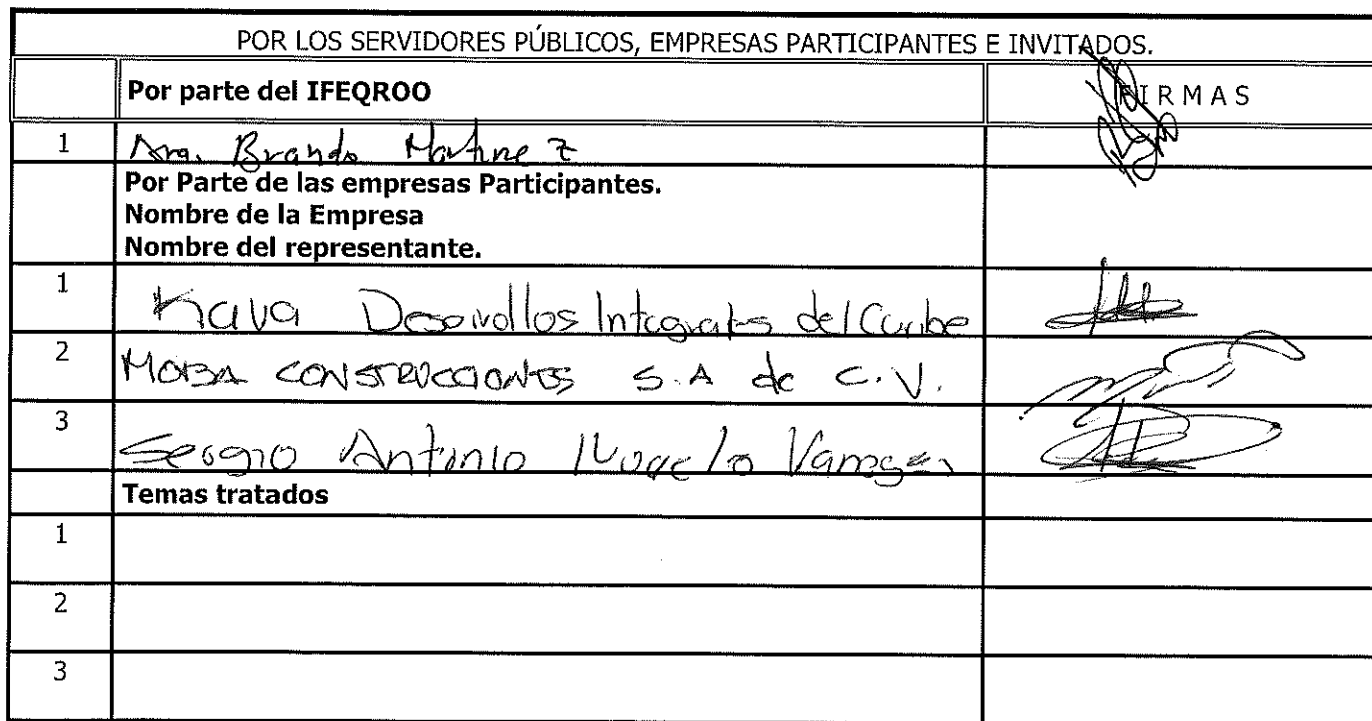 POR LOS SERVIDORES PÚBLICOS, EMPRESAS PARTICIPANTES E INVITADOS.
Por parte del IFEQROO FIRMAS
1 Arq. Brando Martinez
Por Parte de las empresas Participantes.
Nombre de la Empresa
Nombre del representante.
1 Kava Desarrollos Integrales del Caribe
2 MOBA CONSTRUCCIONES S.A de C.V.
3 Sergio Antonio
Temas tratados
1
2
3